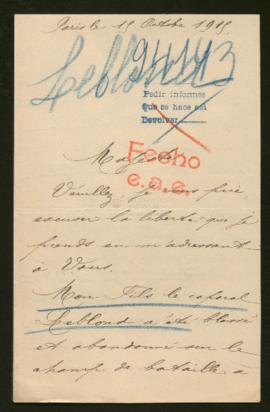 Paris le 11 Octobre 1915
Leblond
Pedir informes
Que se hace así
Devolver
Fecho
e.a.e.
Majesté
Veuillez, je vous prie,
excuser la liberté que je
prends en m'adressant
à Vous.
Mon Fils le caporal
Leblond a été blessé
et abandonné sur le
champ de bataille à